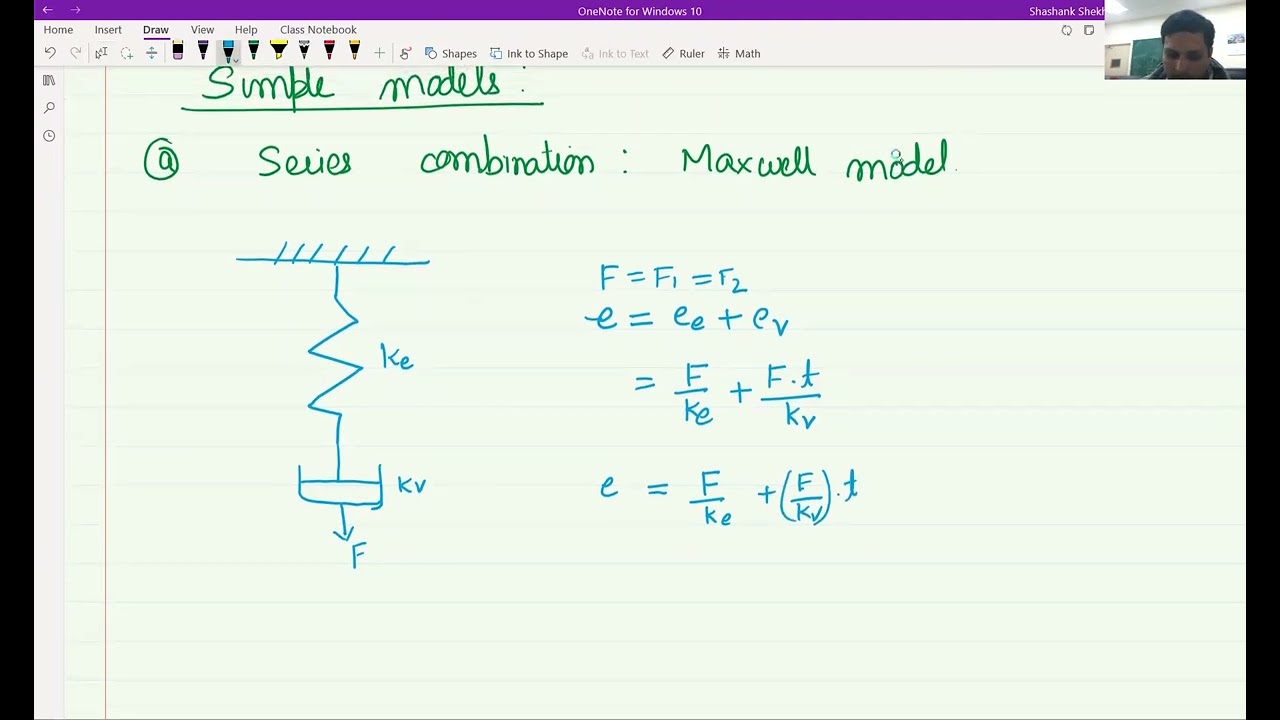 OneNote for Windows 10
Shashank Shekh
Home Insert Draw View Help Class Notebook
Shapes Ink to Shape Ink to Text Ruler Math
Simple models:
ⓐ Series combination: Maxwell model.
F = F₁ = F₂
e = eₑ + eᵥ
= F/kₑ + F.t/kᵥ
e = F/kₑ + (F/kᵥ).t
ke
kv
F